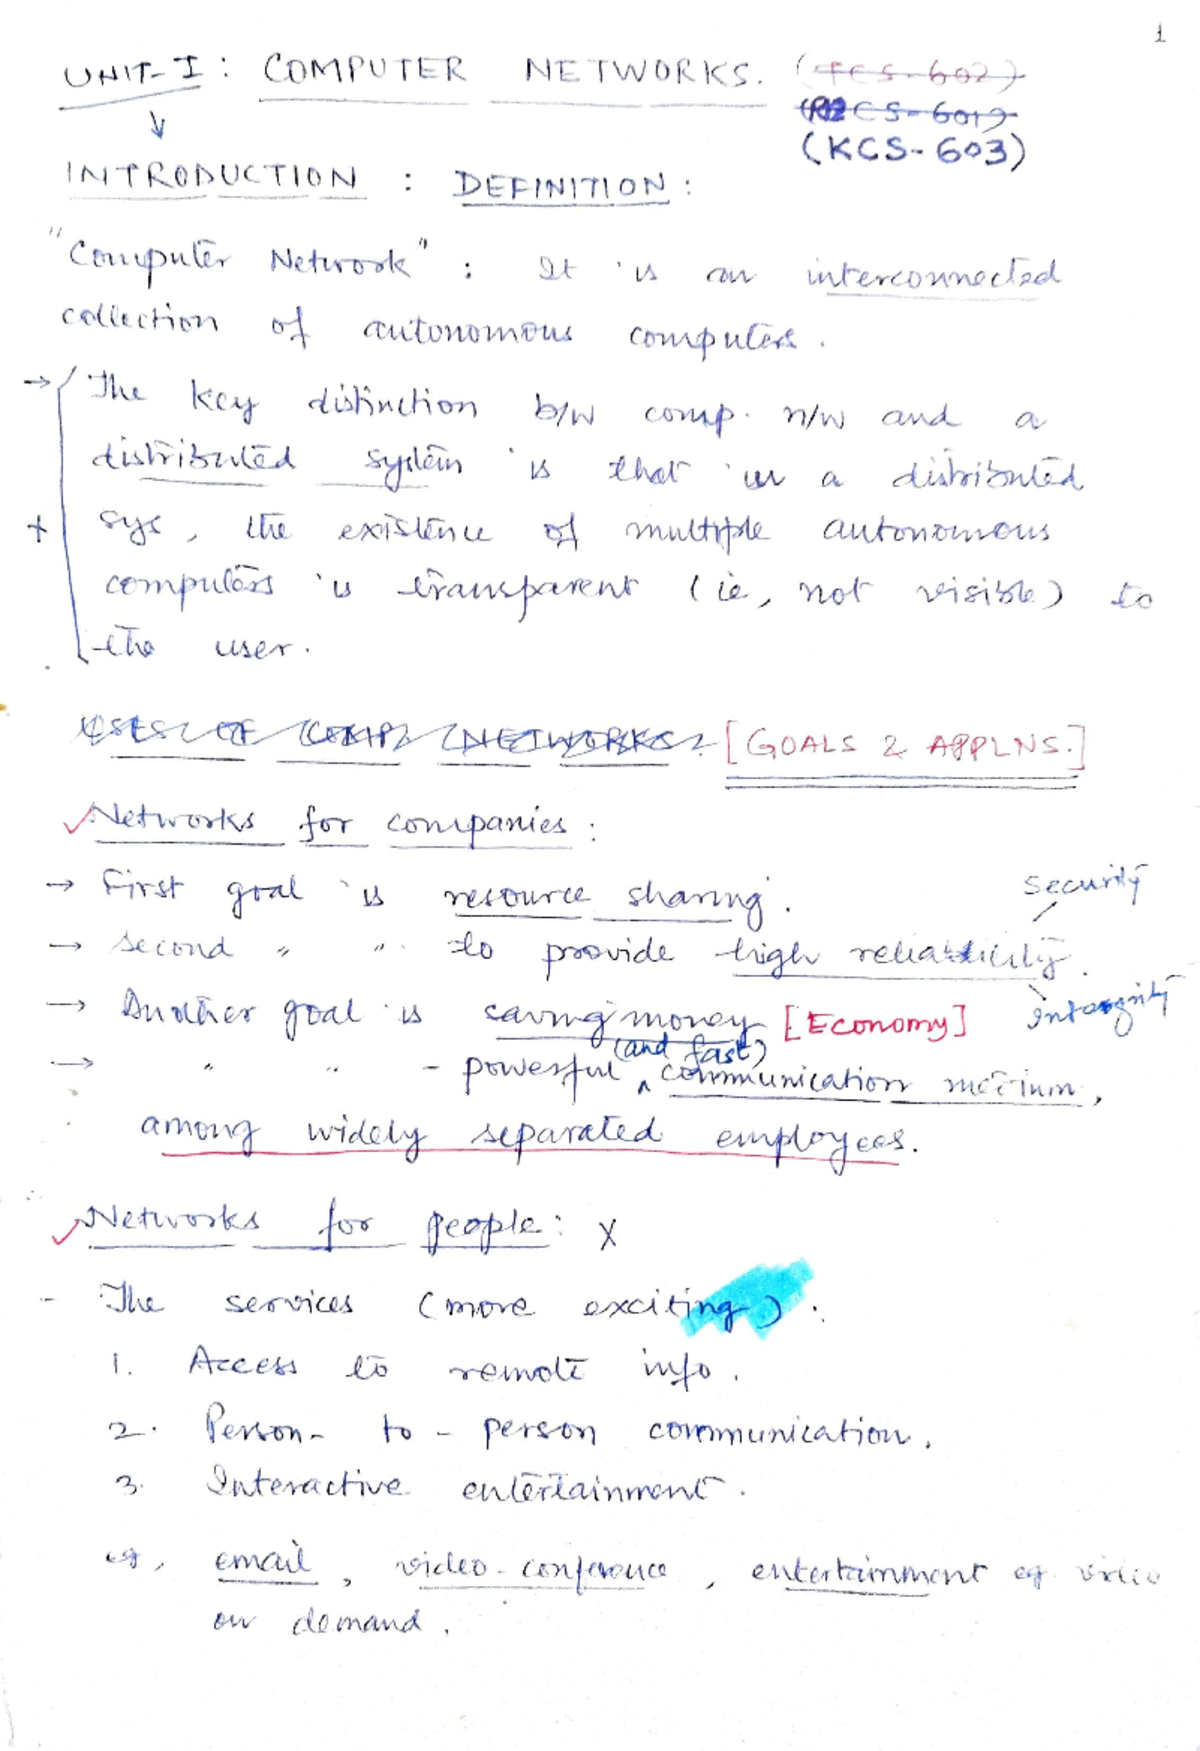 1
UNIT-I : COMPUTER NETWORKS. (TCS-602)
(KCS-603)
INTRODUCTION : DEFINITION :
"Computer Network" : It is an interconnected
collection of autonomous computers.
→ The key distinction b/w comp. n/w and a
distributed system is that in a distributed
+ sys, the existence of multiple autonomous
computers is transparent (ie, not visible) to
the user.
USES OF COMP. NETWORKS : [GOALS & APPLNS.]
✓ Networks for companies :
→ First goal is resource sharing.
security
→ Second " " to provide high reliability.
→ Another goal is saving money [Economy] integrity
(and fast)
→ " " - powerful ^ communication medium,
among widely separated employees.
✓ Networks for people : X
- The services (more exciting) :
1. Access to remote info.
2. Person-to-person communication.
3. Interactive entertainment.
eg, email, video-conference, entertainment eg video
on demand.